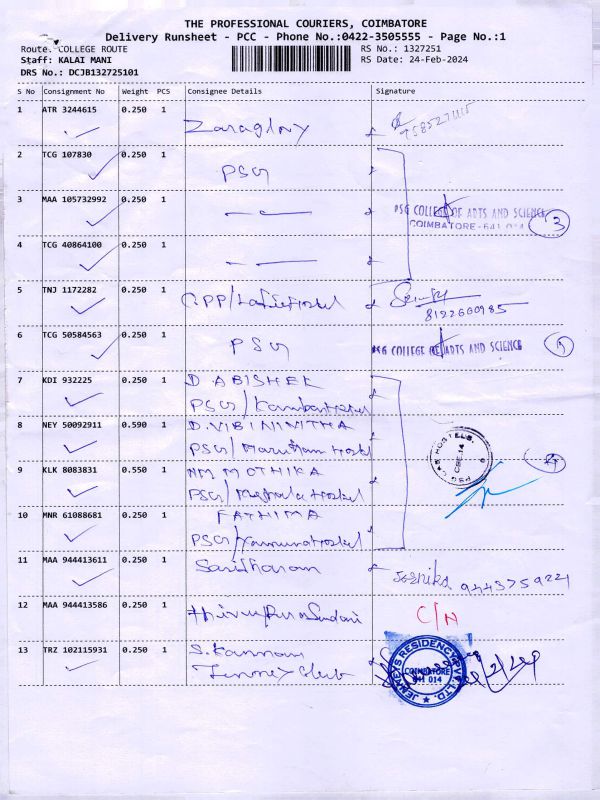 THE PROFESSIONAL COURIERS, COIMBATORE
Delivery Runsheet - PCC - Phone No.:0422-3505555 - Page No.:1
Route: COLLEGE ROUTE RS No.: 1327251
Staff: KALAI MANI RS Date: 24-Feb-2024
DRS No.: DCJB132725101
S No Consignment No Weight PCS Consignee Details Signature
1 ATR 3244615 0.250 1
2 TCG 107830 0.250 1 PSG
3 MAA 105732992 0.250 1 PSG COLLEGE OF ARTS AND SCIENCE
COIMBATORE - 641 014 3
4 TCG 40864100 0.250 1
5 TNJ 1172282 0.250 1
8122600985
6 TCG 50584563 0.250 1 PSG PSG COLLEGE OF ARTS AND SCIENCE
7 KDI 932225 0.250 1 D. ABISHEK
PSG/
8 NEY 50092911 0.590 1 D. VIBINIVITHA
PSG/ Marutham Hostel
9 KLK 8083831 0.550 1 MOTHIKA
PSG/ Hostel
PSG CAS HOSTELS
CBE-14
10 MNR 61088681 0.250 1 FATHIMA
PSG/ Yamuna Hostel
11 MAA 944413611 0.250 1 Joshika 9443759221
12 MAA 944413586 0.250 1 C/N
13 TRZ 102115931 0.250 1 S. Kannan
JENNEYS RESIDENCY PVT. LTD.
COIMBATORE
641 014